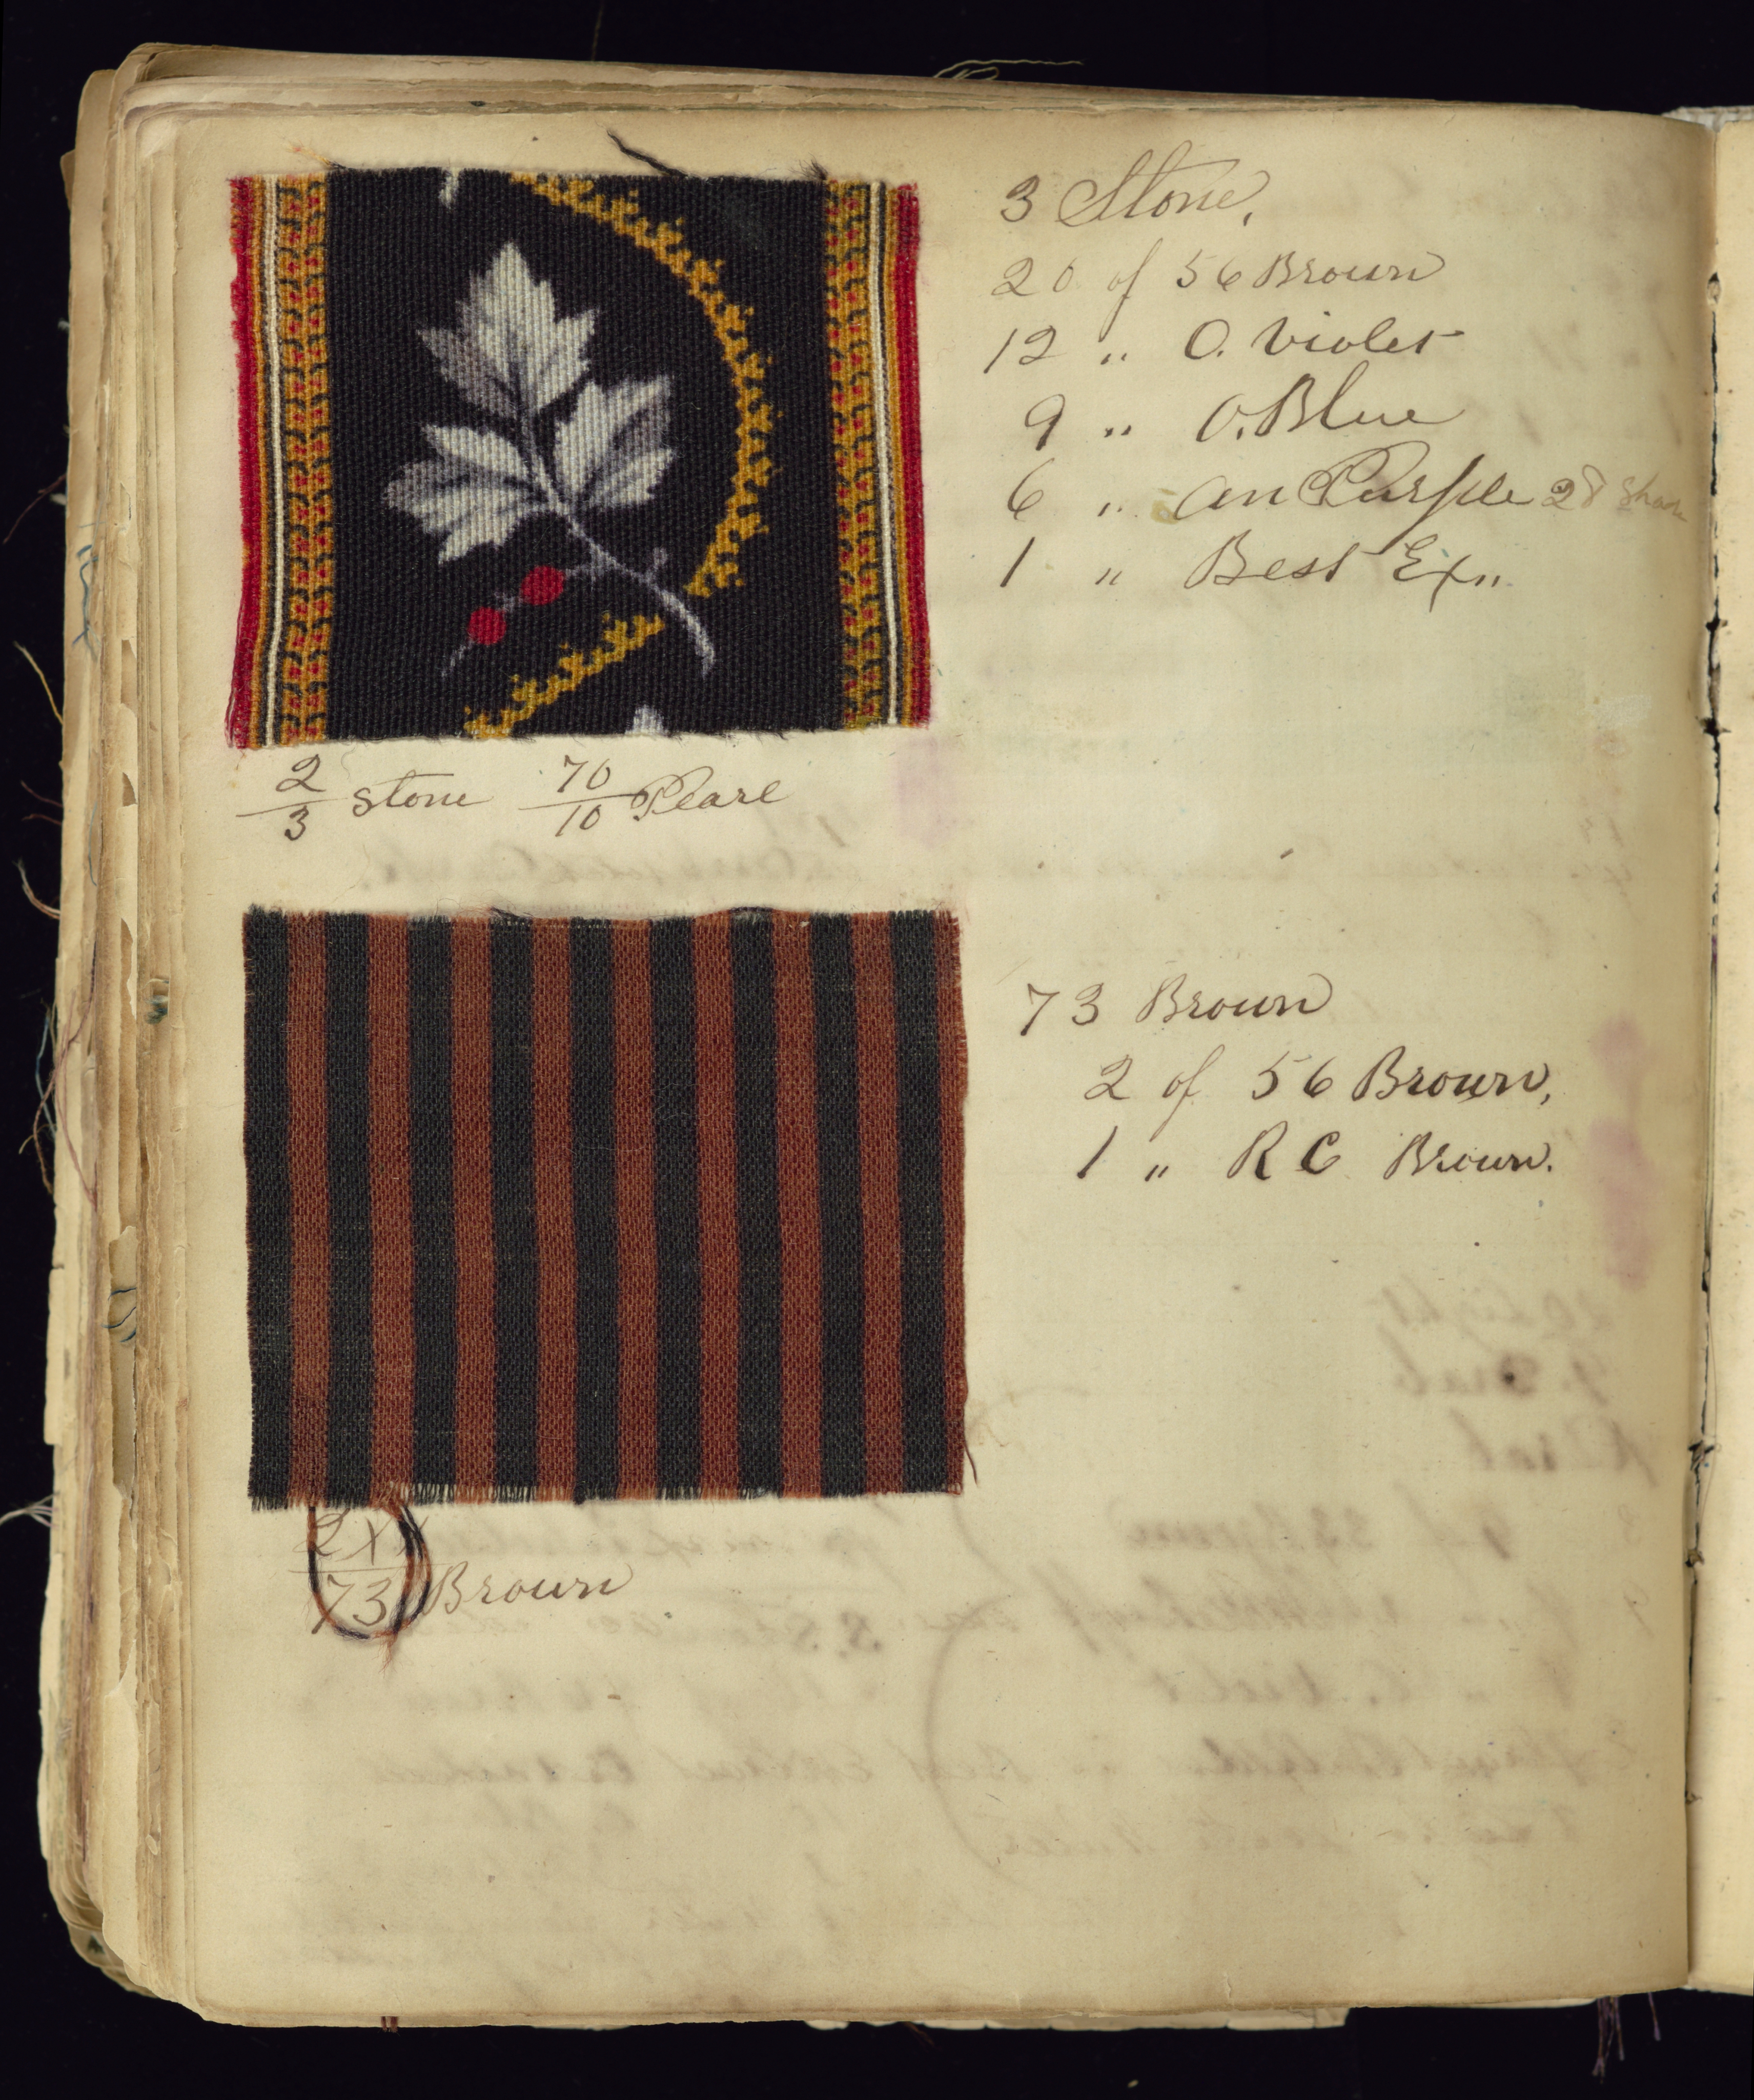 3 Stone,
20 of 56 Brown
12 " O. Violet
9 " O. Blue
6 " An Purple 28 Shade
1 " Best Ex"
2/3 Stone 70/10 Pearl
73 Brown
2 of 56 Brown,
1 " R C Brown.
2xx/73 Brown